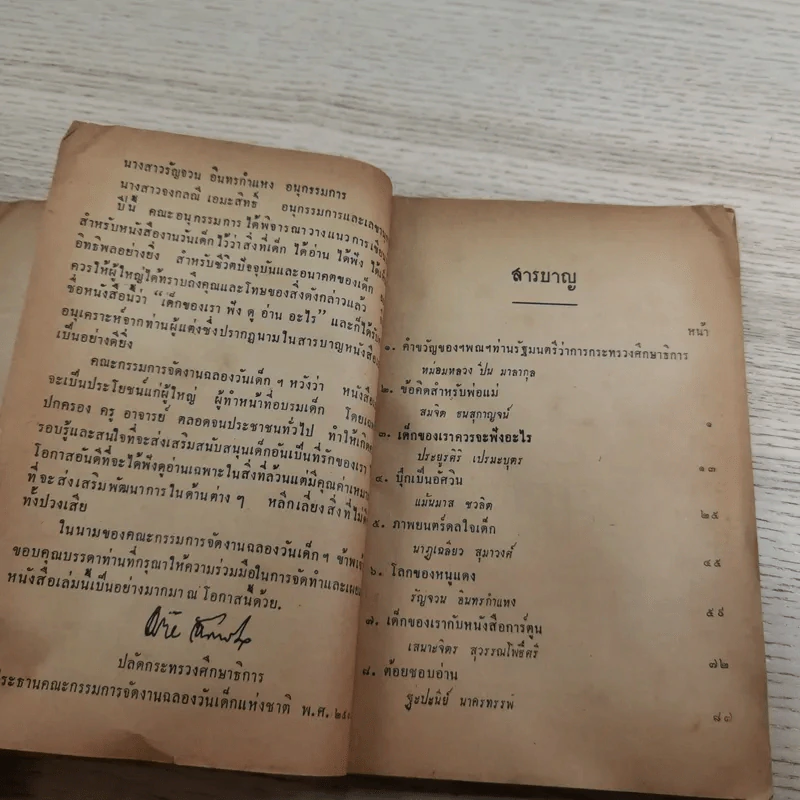 นางสาวรัญจวน อินทรกำแหง อนุกรรมการ
นางสาวจงกลณี เอมะสิทธิ์ อนุกรรมการและเลขานุ
ปีนี้ คณะอนุกรรมการได้พิจารณาวางแนวการเขียน
สำหรับหนังสืองานวันเด็กไว้ว่าสิ่งที่เด็ก ได้อ่าน ได้ฟัง ได้
อิทธิพลอย่างยิ่ง สำหรับชีวิตปัจจุบันและอนาคตของเด็ก
ควรให้ผู้ใหญ่ได้ทราบถึงคุณและโทษของสิ่งดังกล่าวแล้ว
ชื่อหนังสือนี้ว่า “เด็กของเรา ฟัง ดู อ่าน อะไร” และก็ได้รับ
อนุเคราะห์จากท่านผู้แต่งซึ่งปรากฏนามในสารบาญหนังสือ
เป็นอย่างดียิ่ง
คณะกรรมการจัดงานฉลองวันเด็ก ฯ หวังว่า หนังสือ
จะเป็นประโยชน์แก่ผู้ใหญ่ ผู้ทำหน้าที่อบรมเด็ก โดย
ปกครอง ครู อาจารย์ ตลอดจนประชาชนทั่วไป ทำให้เกิด
รอบรู้และสนใจที่จะส่งเสริมสนับสนุนเด็กอันเป็นที่รักของเรา
โอกาสอันดีที่จะได้ฟังดูอ่านเฉพาะในสิ่งที่ล้วนแต่มีคุณค่าเหมาะ
ที่จะส่งเสริมพัฒนาการในด้านต่าง ๆ หลีกเลี่ยงสิ่งที่ไม่
ทั้งปวงเสีย
ในนามของคณะกรรมการจัดงานฉลองวันเด็ก ฯ ข้าพเจ้า
ขอบคุณบรรดาท่านที่กรุณาให้ความร่วมมือในการจัดทำและเผย
หนังสือเล่มนี้เป็นอย่างมากมา ณ โอกาสนี้ด้วย.
ปลัดกระทรวงศึกษาธิการ
ประธานคณะกรรมการจัดงานฉลองวันเด็กแห่งชาติ พ.ศ.
สารบาญ
หน้า
๑. คำขวัญของฯพณฯท่านรัฐมนตรีว่าการกระทรวงศึกษาธิการ
หม่อมหลวง ปิ่น มาลากุล
๒. ข้อคิดสำหรับพ่อแม่
สมจิต ธนสุกาญจน์ ๑
๓. เด็กของเราควรจะฟังอะไร
ประยูรศิริ เปรมะบุตร ๑๓
๔. บุ๊กเป็นอัศวิน
แม้นมาส ชวลิต ๒๕
๕. ภาพยนตร์ดลใจเด็ก
นาฏเฉลียว สุมาวงศ์ ๔๕
๖. โลกของหนูแดง
รัญจวน อินทรกำแหง ๕๙
๗. เด็กของเรากับหนังสือการ์ตูน
เสนาะจิตร สุวรรณโพธิ์ศรี ๗๒
๘. ต้อยชอบอ่าน
ฐะปะนีย์ นาครทรรพ